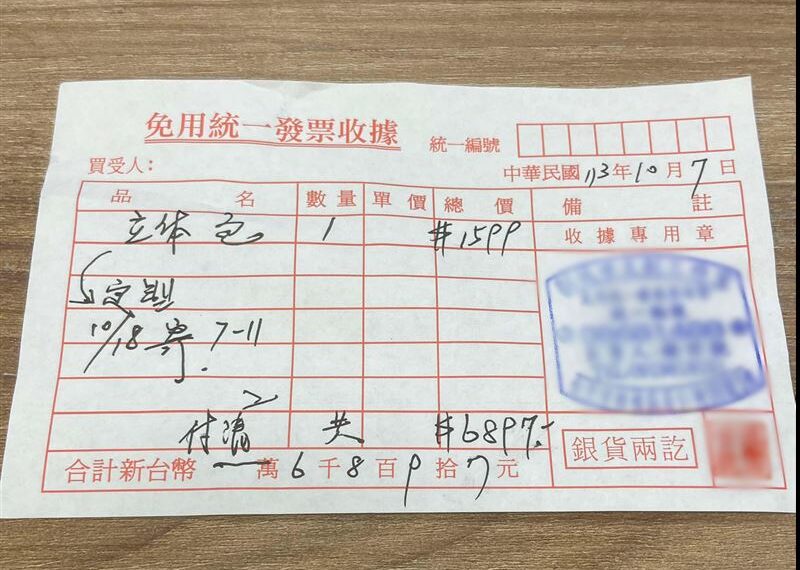 免用統一發票收據
統一編號
買受人：
中華民國113年10月7日
品名 數量 單價 總價 備註
立体包 1 #1599 收據專用章
定型
10/18寄 7-11
付清 共 #6897.-
銀貨兩訖
合計新台幣 萬6千8百9拾7元